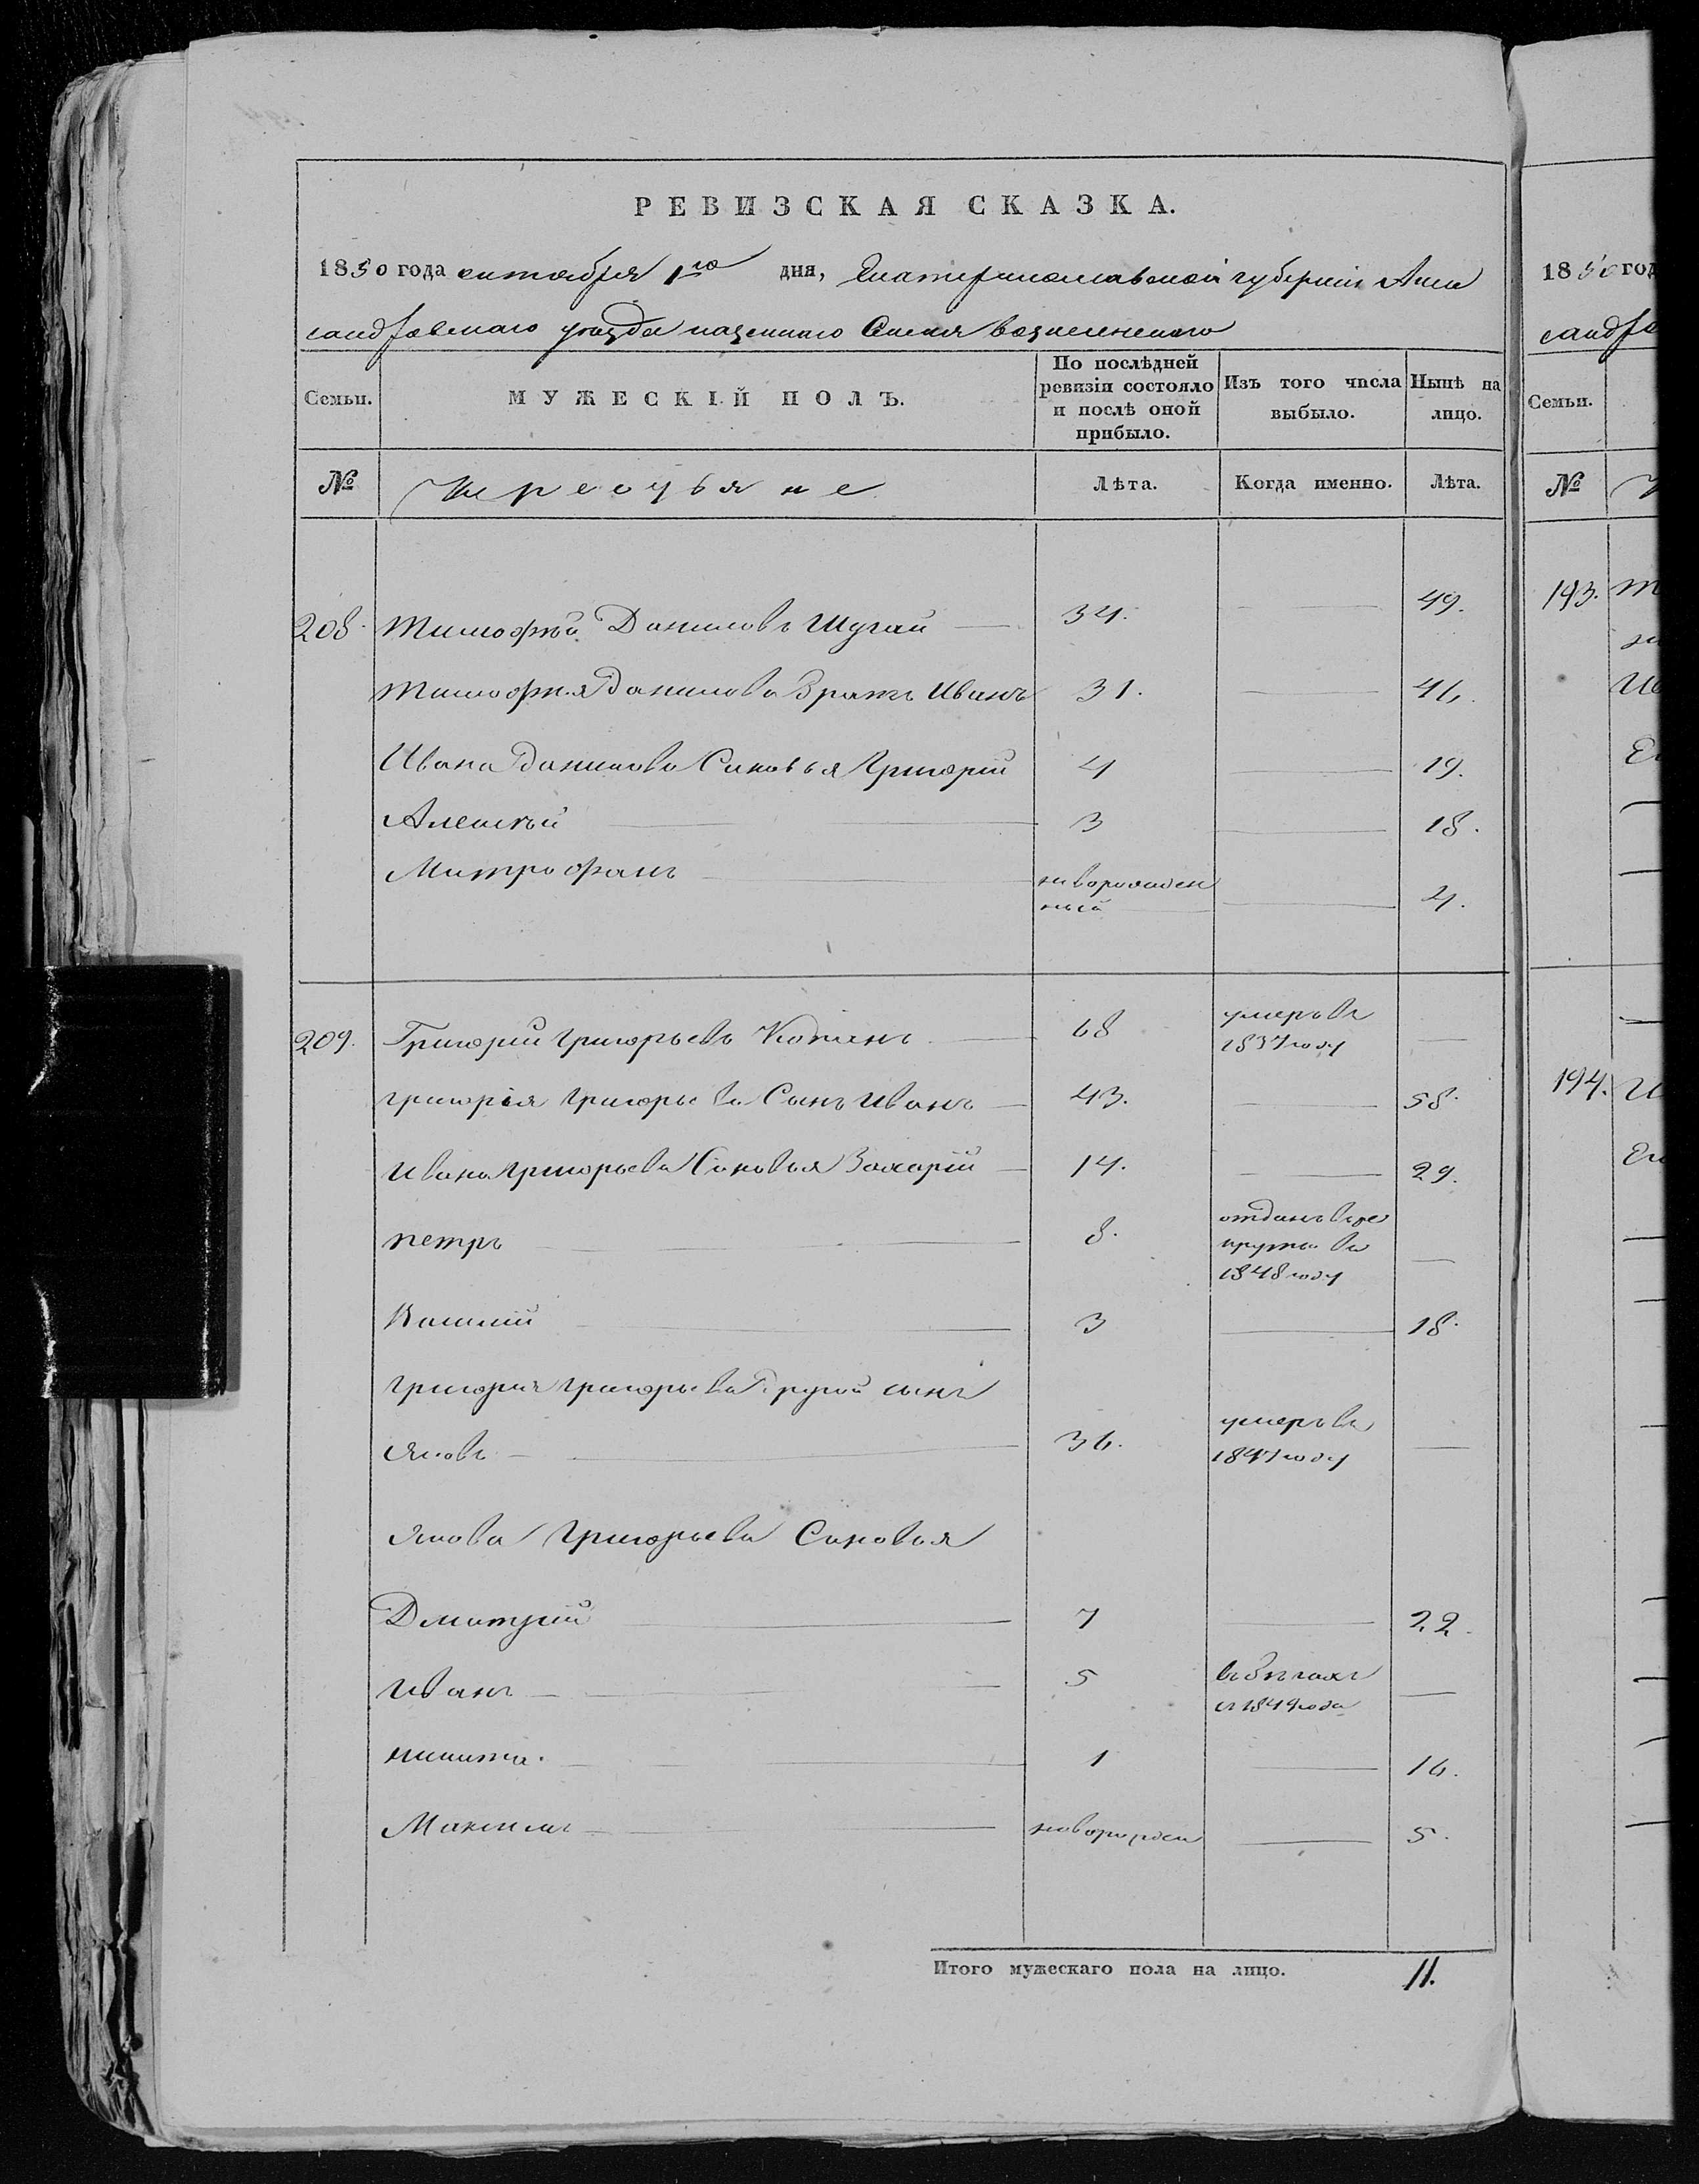 РЕВИЗСКАЯ СКАЗКА.
1850 года октября 1го дня, Екатеринославской губернiи Алек
сандровскаго уѣзда казеннаго Селенiя вознесенскаго
Семьи. МУЖЕСКIЙ ПОЛЪ. По послѣдней ревизiи состояло и послѣ оной прибыло. Изъ того числа выбыло. Нынѣ на лицо.
№ Крестьяне Лѣта. Когда именно. Лѣта.
208. Тимофѣй Даниловъ Шугай 34. 49.
Тимофея Данилова Братъ Иванъ 31. 46.
Ивана Данилова Сыновья Григорiй 4 19.
Алексѣй 3 18.
Митрофанъ новорожден
ный 4.
209. Григорiй Григорьевъ 68 умеръ въ
1837 году
григорiя Григорьева Сынъ Иванъ 43. 58.
Ивана Григорьева Сыновья Захарiй 14. 29.
петръ 8. отданъ въ ре
круты въ
1848 году
Василiй 3 18.
Григорiя Григорьева Другой сынъ
Яковъ 36. умеръ въ
1847 году
Якова Григорьева Сыновья
Дмитрiй 7 22.
Иванъ 5 въ бѣгахъ
съ 1849 года
никита. 1 16.
Максимъ новорожден 5.
Итого мужескаго пола на лицо. 11.
1850 год
сандро
Семьи.
№
193.
194.